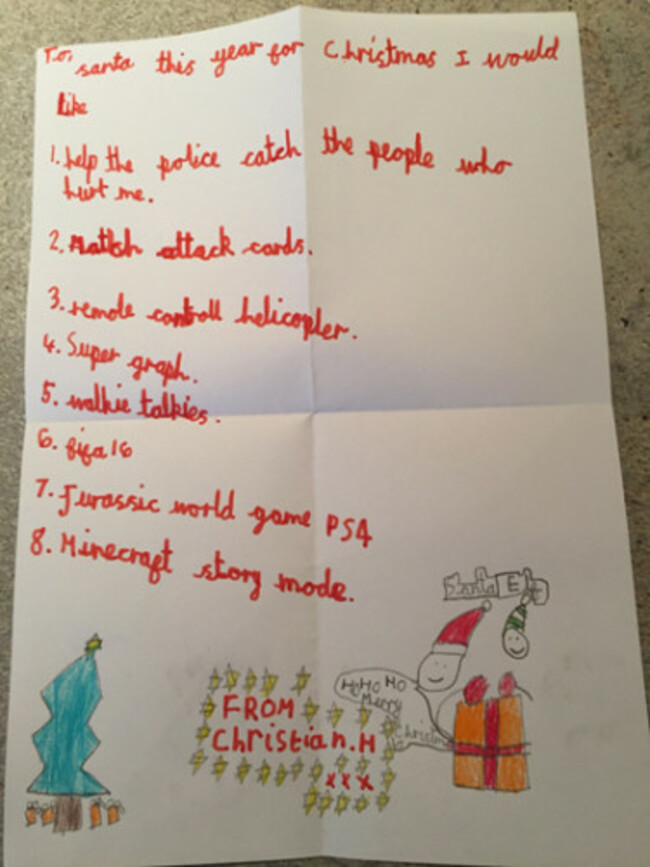 To, santa this year for Christmas I would
like
1. help the police catch the people who
hurt me.
2. Match attack cards.
3. remote controll helicopter.
4. Super graph.
5. walkie talkies.
6. fifa 16
7. Jurassic world game PS4
8. Minecraft story mode.
Santa Elf
HoHo Ho
Merry
Christmas
FROM
Christian.H
x x x